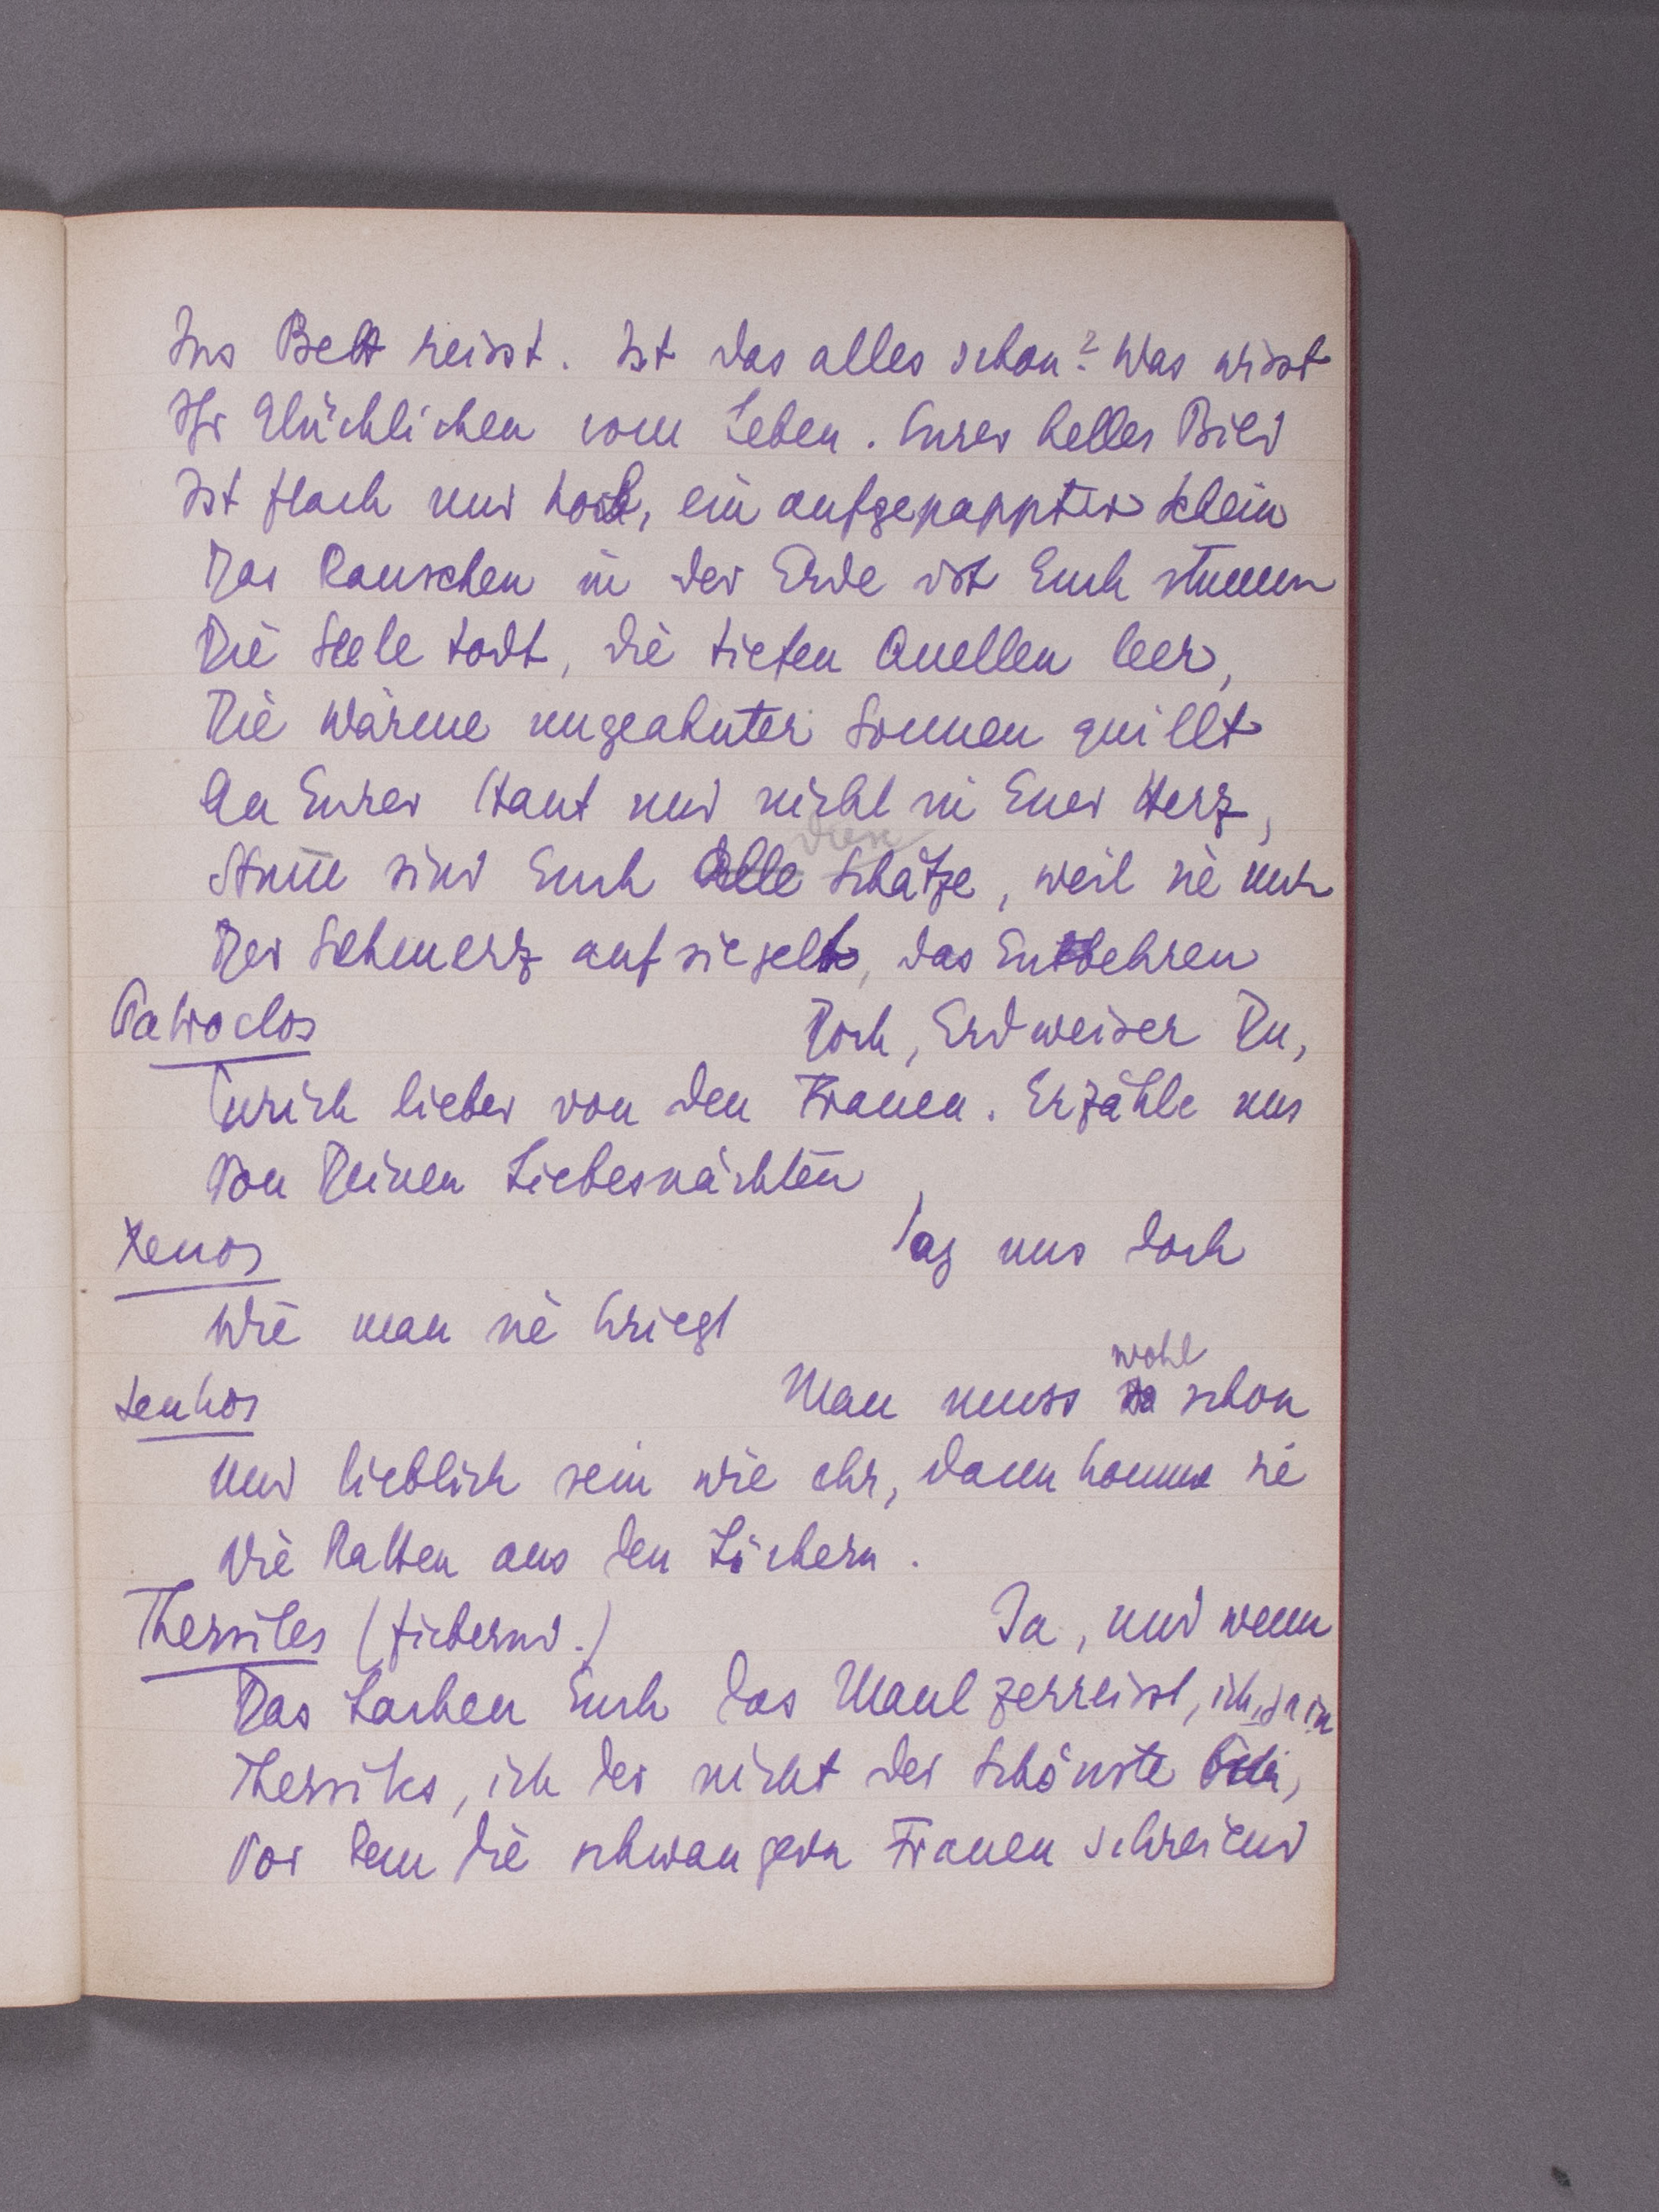 Ins Bett reisst. Ist das alles schon? Was wisst
Ihr Glücklichen vom Leben. Eurer helles Bild
Ist flach und hohl, ein aufgepappter Schein
Das Rauschen in der Erde ist Euch stumm
Die Seele todt, die tiefen Quellen leer,
Die Wärme ungeahnter Sonnen quillt
An Eurer Haut und nicht in Euer Herz,
Stum̄ sind Euch alle diese Schätze, weil sie nur
Der Schmerz aufsiegelt, das Entbehren
Patroclos Doch, Erdweiser Du,
Sprich lieber von den Frauen. Erzähle uns
Von Deinen Liebesnächten
Xenos Sag uns doch
Wie man sie kriegt
Leukos Man muss wohl schon
Und lieblich sein wie ihr, dann komme sie
Wie Ratten aus den Löchern.
Thersites (fiebernd.) Ja, und wenn
Das Lachen Euch das Maul zerreisst, ich,
Thersites, ich der nicht der Schönste bin,
Vor dem die schwangern Frauen schreiend